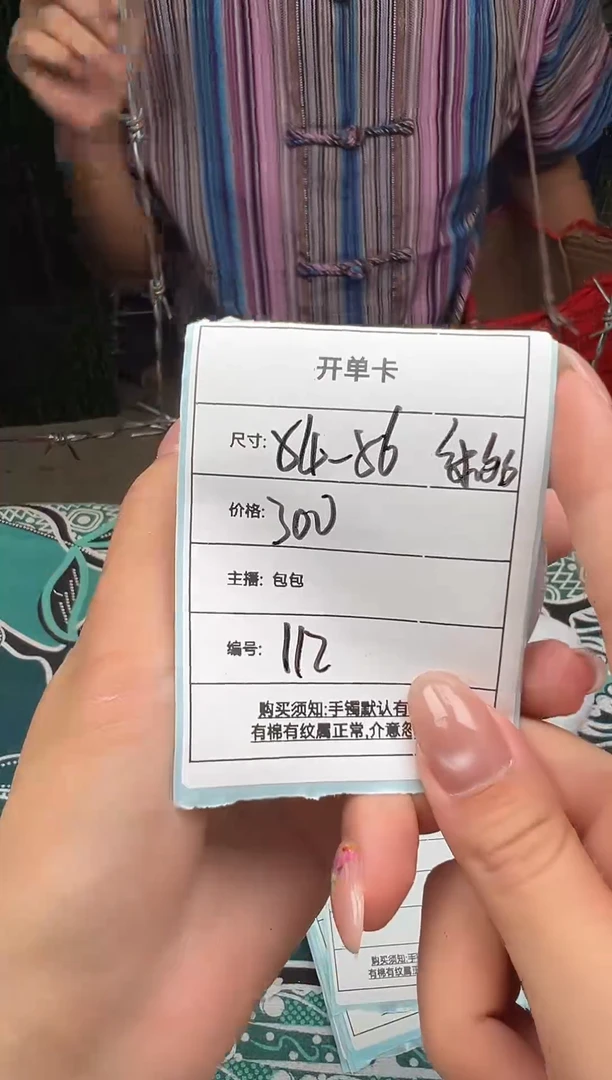 开单卡
尺寸: 54-56
价格: 300
主播: 包包
编号: 112
购买须知:手镯默认有
有棉有纹属正常,介意
购买须知:手
有棉有纹属